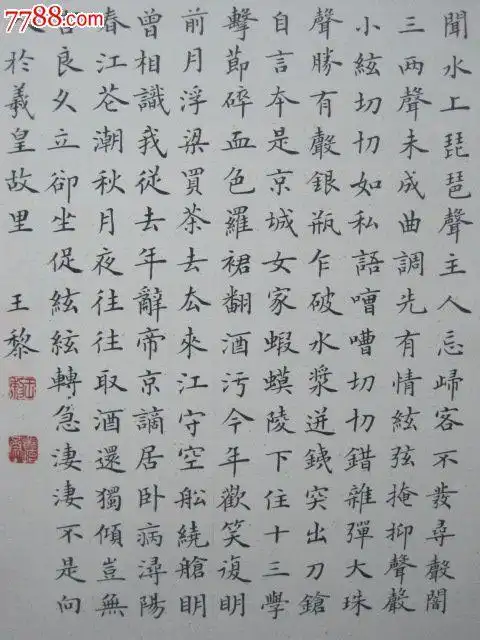 7788.com
聞水上琵琶聲主人忘歸客不發尋聲闇
三兩聲未成曲調先有情絃弦掩抑聲聲
小絃切切如私語嘈嘈切切錯雜彈大珠
聲勝有聲銀瓶乍破水漿迸鐵突出刀鎗
自言本是京城女家蝦蟆陵下住十三學
擊節碎血色羅裙翻酒污今年歡笑復明
前月浮梁買茶去去來江守空船繞艙明
曾相識我從去年辭帝京謫居卧病潯陽
春江花潮秋月夜往往取酒還獨傾豈無
良久立卻坐促絃絃轉急淒淒不是向
於羲皇故里 王黎